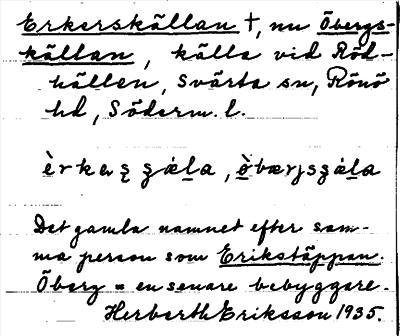 Erkerskällan †, nu Öbergs-
källan, källa vid Röd-
hällen, Svärta sn, Rönö
hd, Söderm. l.
èrkeʂ ʂɛ́la, ò̱bærjsʂɛ́la
Det gamla namnet efter sam-
ma person som Erikstäppan.
Öberg = en senare bebyggare.
Herberth Eriksson 1935.